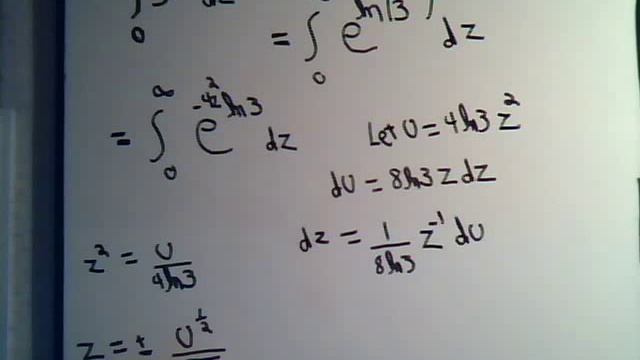 ∫₀ dz
= ∫₀ e^ln(3 ) dz
= ∫₀^∞ e^-4z² ln3 dz Let U = 4 ln3 z²
dU = 8 ln3 z dz
dz = 1/(8 ln3) z⁻¹ dU
z² = U/(4 ln3)
z = ± U^(1/2)